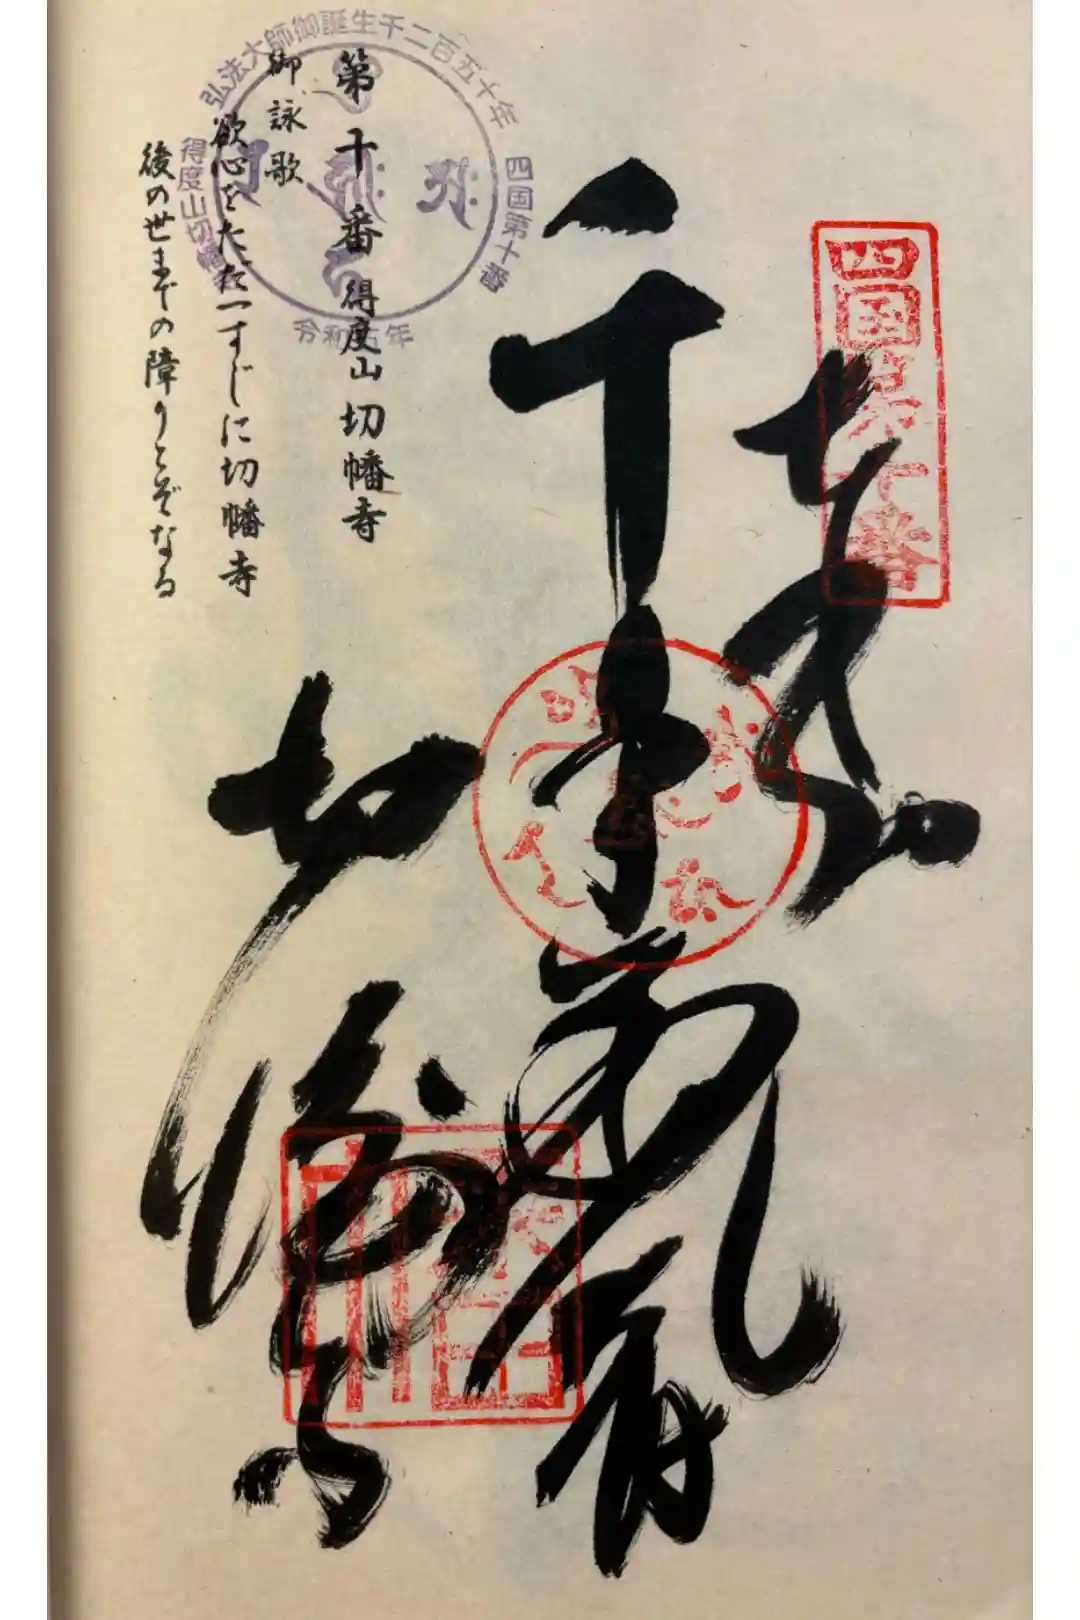 四国第十番
奉納
千手観音
切幡寺
弘法大師御誕生千二百五十年
四国第十番
得度山切幡寺
令和五年
第十番 得度山 切幡寺
御詠歌
欲心をただ一すじに切幡寺
後の世までの障りとぞなる